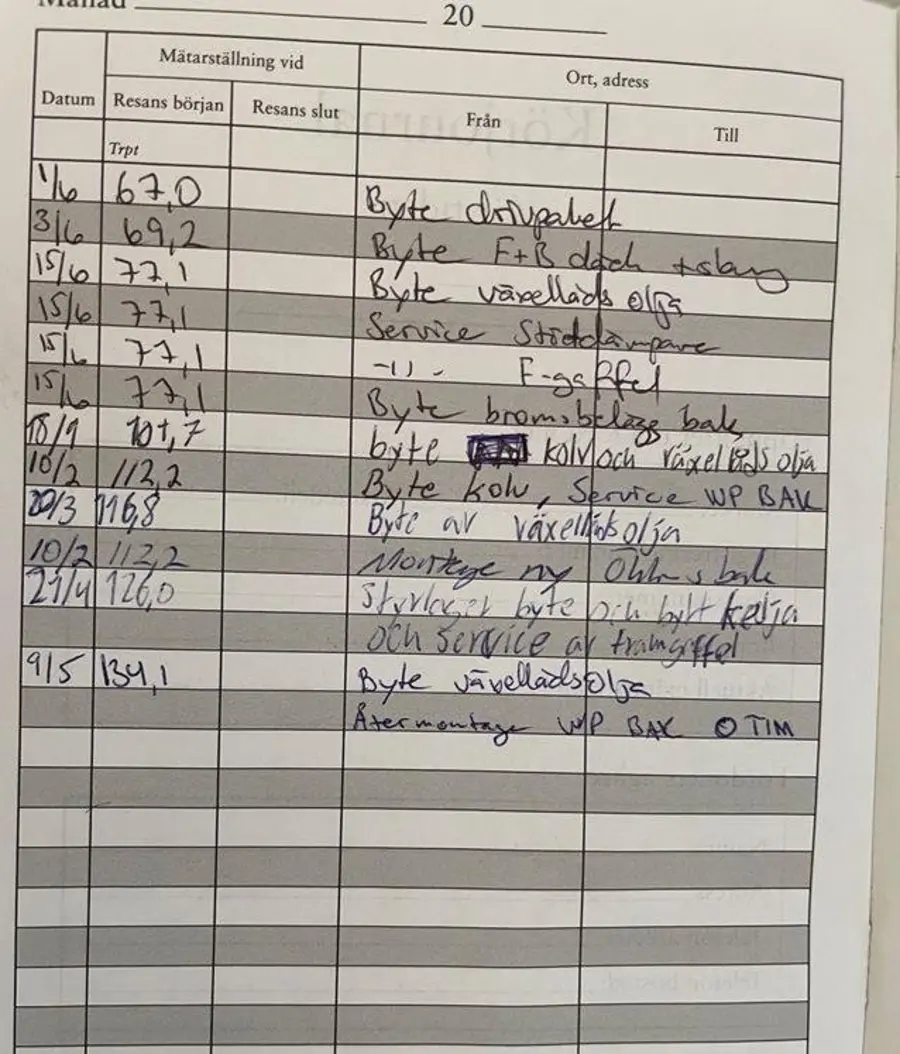 Månad 20
Mätarställning vid Ort, adress
Datum Resans början Resans slut Från Till
Trpt
1/6 67,0 Byte drivpaket
3/6 69,2 Byte F+B däck +slang
15/6 77,1 Byte växellåds olja
15/6 77,1 Service Stötdämpare
15/6 77,1 -11- F-gaffel
15/6 77,1 Byte bromsbelägg bak
18/9 101,7 byte kolv och växellåds olja
10/2 112,2 Byte kolv, Service WP BAK
20/3 116,8 Byte av växellådsolja
10/2 112,2 Montage ny Öhlins bak
21/4 126,0 Styrlager byte och bytt kedja
och service av framgaffel
9/5 134,1 Byte växellådsolja
Återmontage WP BAK 0 TIM